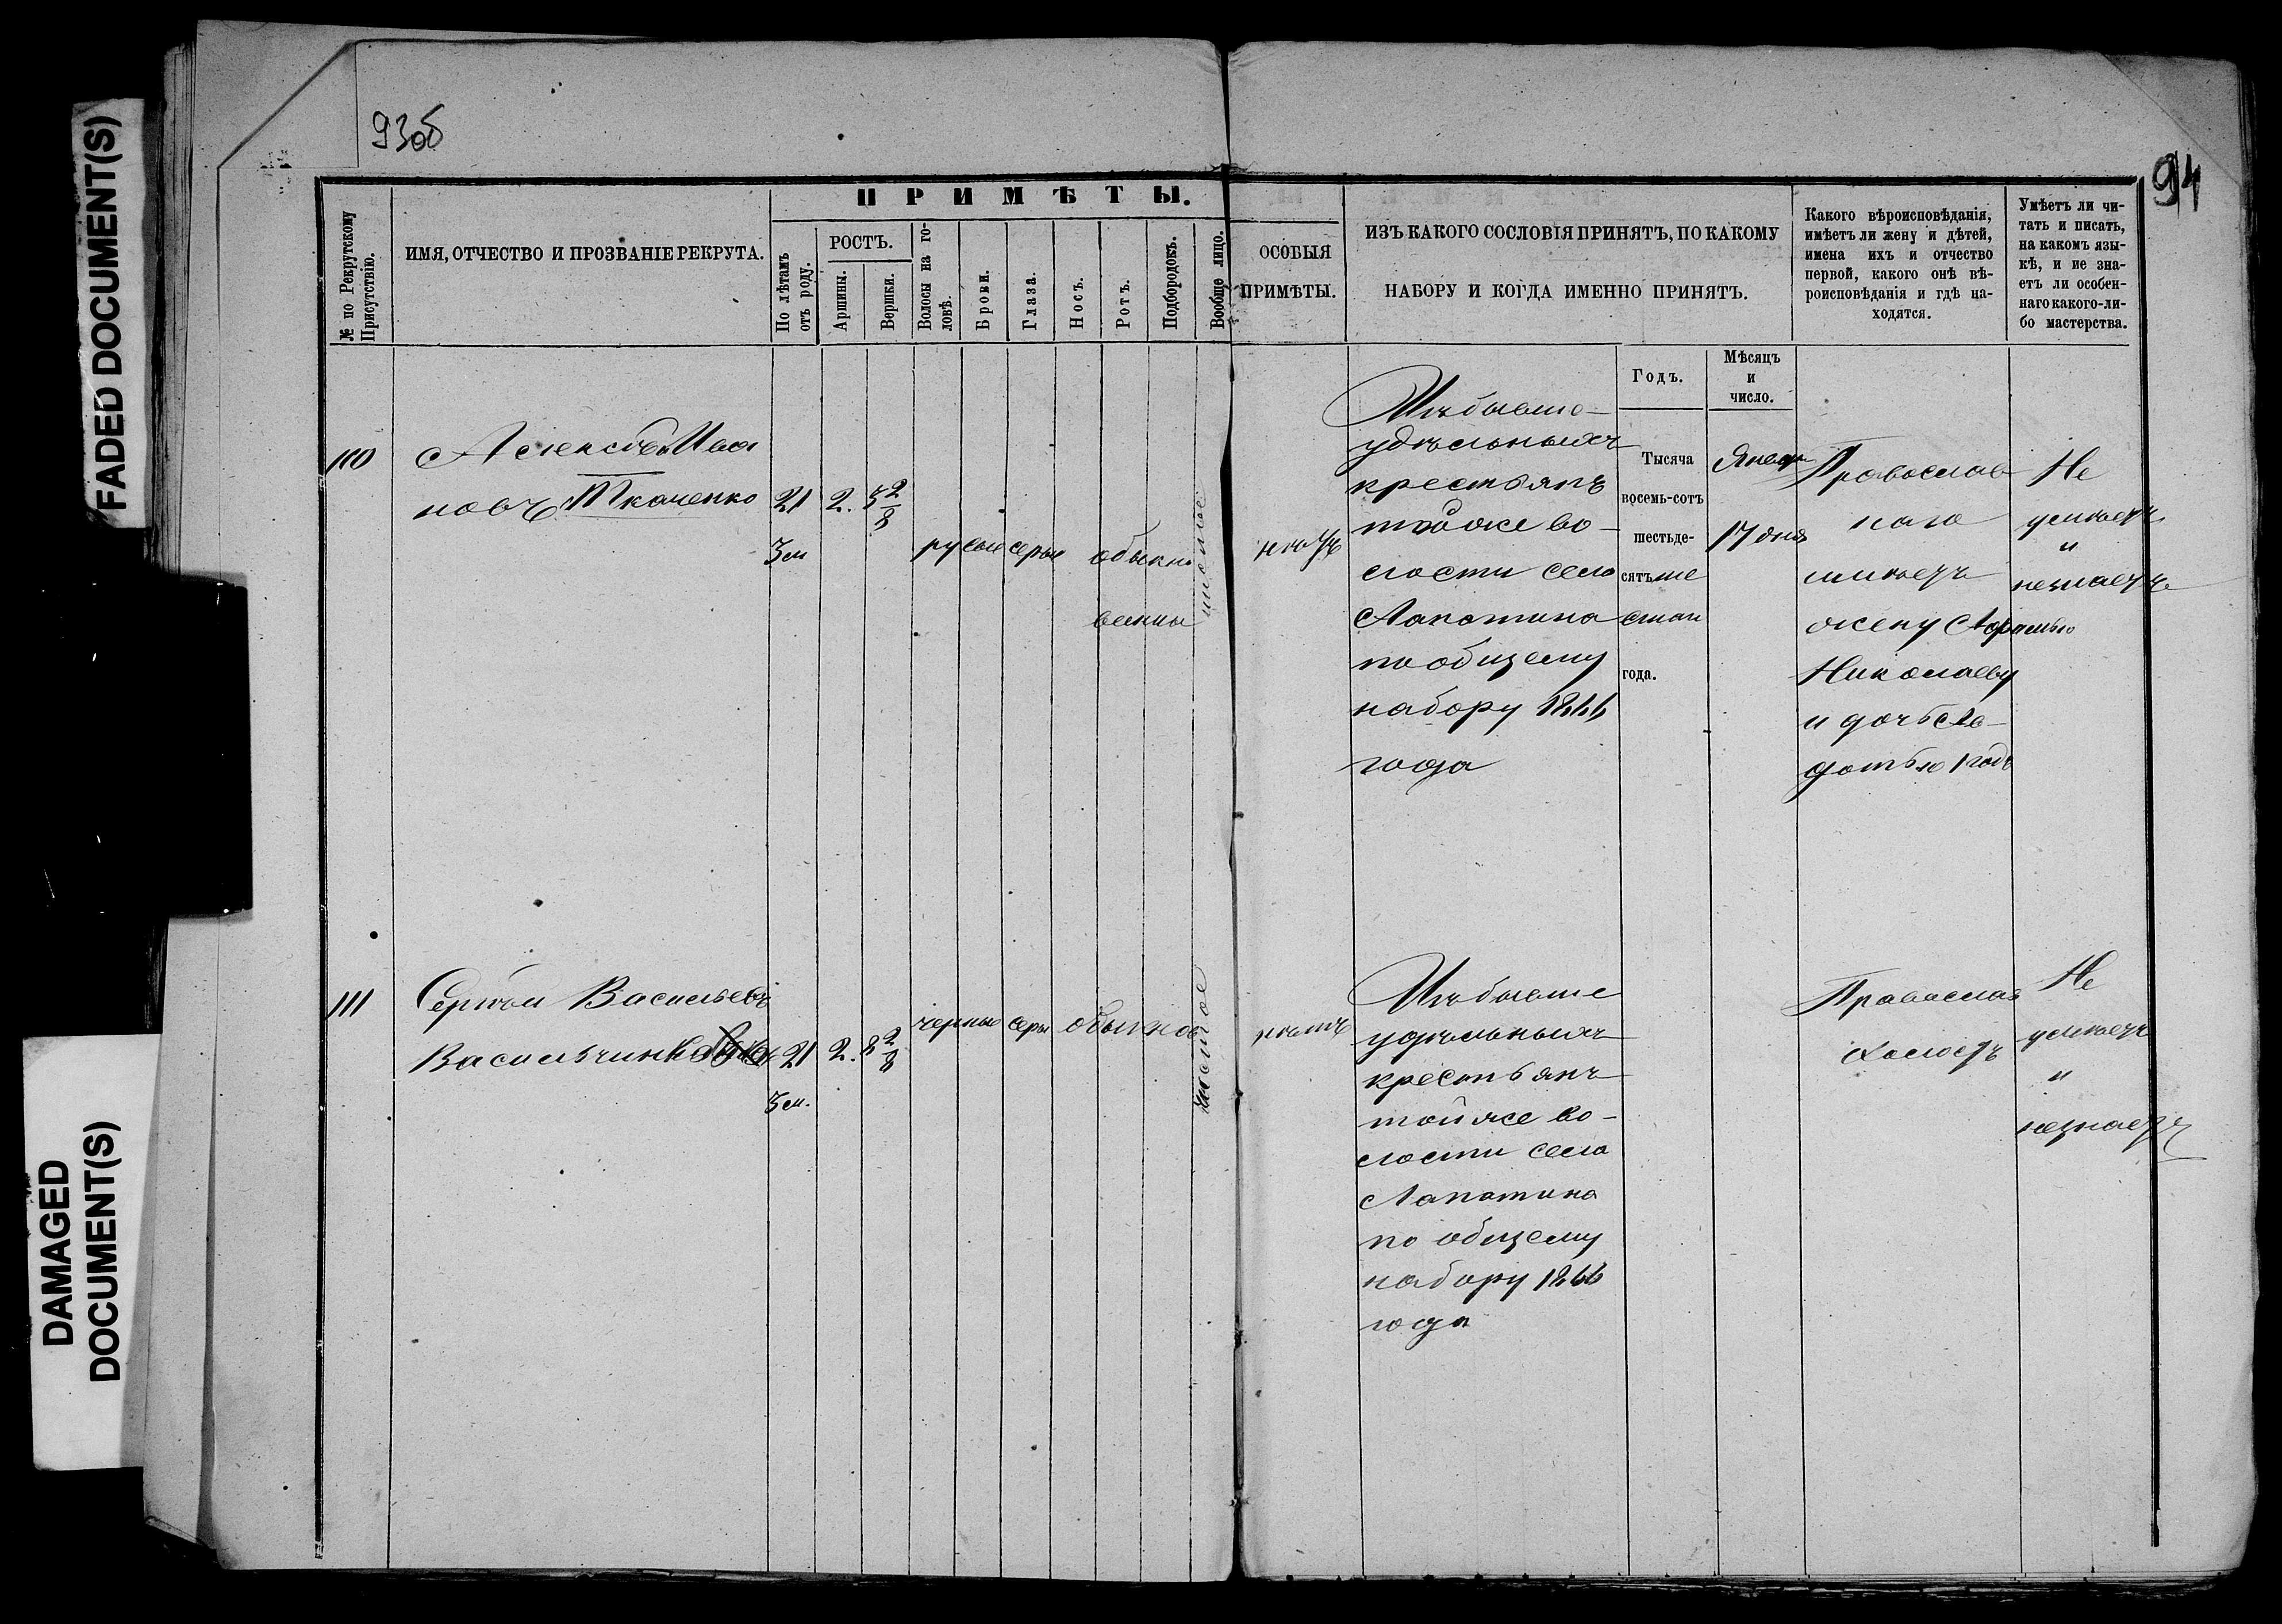 FADED DOCUMENT(S)
DAMAGED
DOCUMENT(S)
93об
94
№ по Рекрутскому
Присутствію.
ИМЯ, ОТЧЕСТВО И ПРОЗВАНІЕ РЕКРУТА.
ПРИМѢТЫ.
По лѣтамъ
отъ роду.
РОСТЪ.
Аршины.
Вершки.
Волосы на го-
ловѣ.
Брови.
Глаза.
Носъ.
Ротъ.
Подбородокъ.
Вообще лицо.
ОСОБЫЯ
ПРИМѢТЫ.
ИЗЪ КАКОГО СОСЛОВІЯ ПРИНЯТЪ, ПО КАКОМУ
НАБОРУ И КОГДА ИМЕННО ПРИНЯТЪ.
Какого вѣроисповѣданія,
имѣетъ ли жену и дѣтей,
имена ихъ и отчество
первой, какого онѣ вѣ-
роисповѣданія и гдѣ на-
ходятся.
Умѣетъ ли чи-
тать и писать,
на какомъ язы-
кѣ, и не зна-
етъ ли особен-
наго какого-ли-
бо мастерства.
Годъ.
Мѣсяцъ
и
число.
110
Алексѣй Ива
новъ Ткаченко
21
3 м
2.
2/8
русые
серые
обыкно
венные
нѣтъ
Изъ бывше-
удѣльныхъ
крестьянъ
той же во-
лости села
Лапатина
по общему
набору 1866
года
Тысяча
восемь-сотъ
шестьде-
сятъ ше
года.
Январ
17 дня
Православ
наго
имѣетъ
жену
Николаеву
и дочь Ев-
дотью 1 годъ
Не
умѣетъ
и
незнаетъ
111
Сергѣй Васильевъ
21
3 м.
2.
8 2/8
черные
серы
обыкнов
нѣтъ
Изъ бывше
удѣльныхъ
крестьянъ
той же во-
лости села
Лапатина
по общему
набору 1866
года
Православ
холостъ
Не
умѣетъ
и
незнаетъ